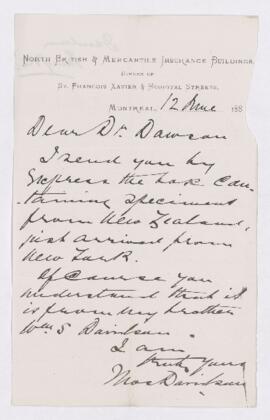 North British & Mercantile Insurance Buildings,
Corner of
St. Francois Xavier & Hospital Streets,
Montreal, 12 June 188
Dear Dr. Dawson
I send you by
Express the box Con-
taining specimens
from New Zealand,
just arrived from
New York.
Of Course you
understand that it
is from my brother
Wm S Davidson
I am
truly Yours
Thos Davidson